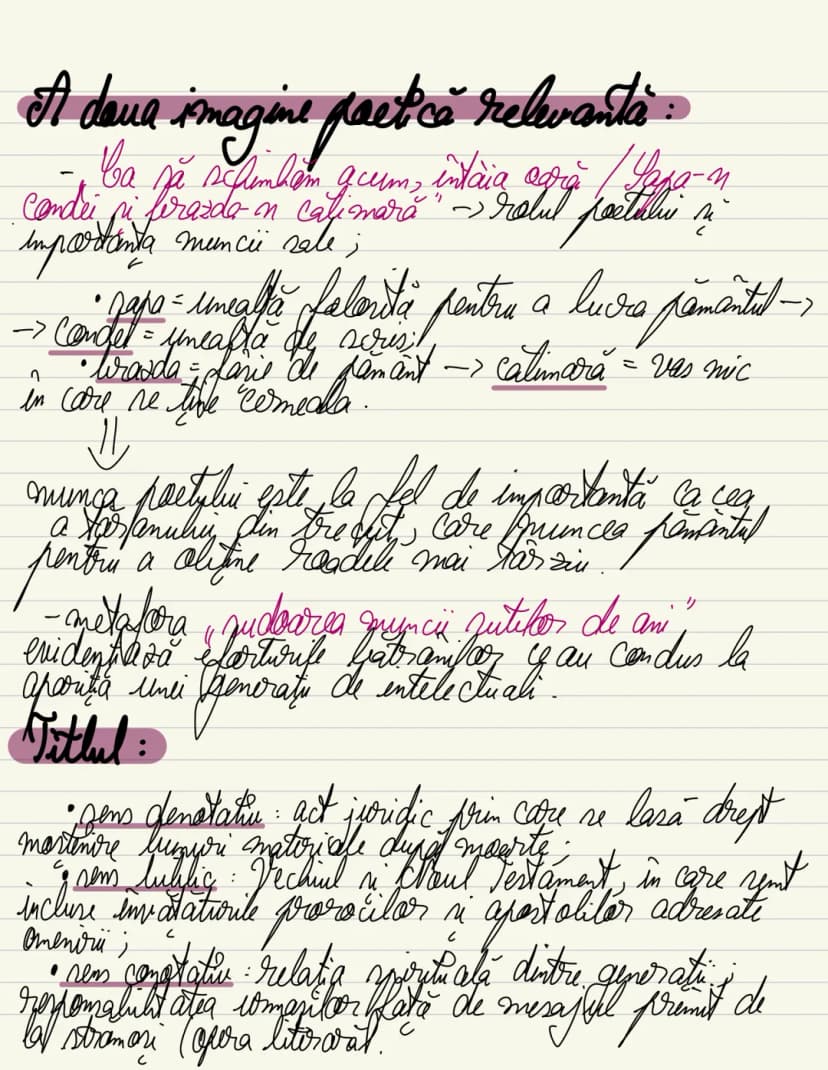 A doua imagine poetică relevantă:
- „Ca să schimbăm acum, întâia oară / Sapa-n
condei și brazda-n călimară" -> rolul poetului și
importanța muncii sale;
• sapa = unealtă folosită pentru a lucra pământul ->
-> condei = unealtă de scris;
• brazda = fâșie de pământ -> călimară = vas mic
în care se ține cerneala.
munca poetului este la fel de importantă ca cea
a țăranului din trecut, care muncea pământul
pentru a obține roadele mai târziu.
- metafora „sudoarea muncii sutelor de ani"
evidențiază eforturile bătrânilor ce au condus la
apariția unei generații de intelectuali.
Titlul:
• sens denotativ: act juridic prin care se lasă drept
moștenire bunuri materiale după moarte;
• sens biblic: Vechiul și Noul Testament, în care sunt
incluse învățăturile prorocilor și apostolilor adresate
omenirii;
• sens conotativ: relația spirituală dintre generații;
responsabilitatea urmașilor față de mesajul primit de
la strămoși (opera literară).